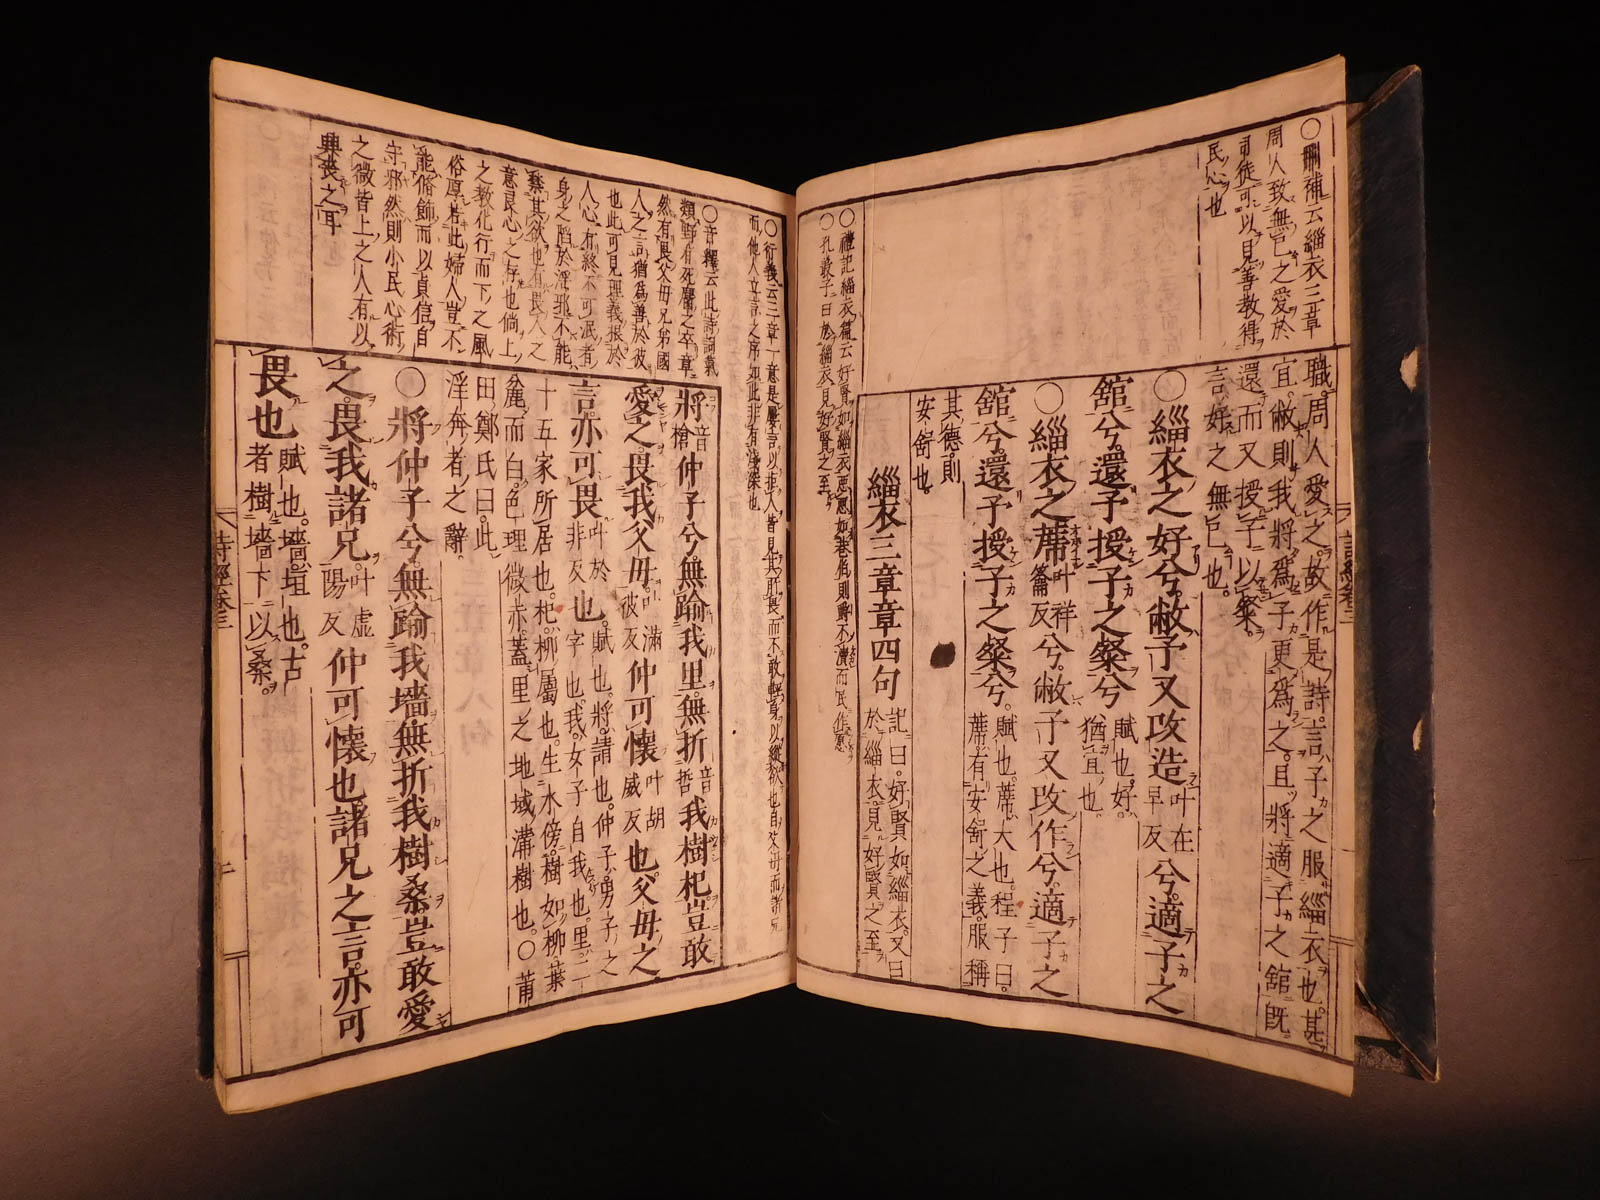 ○刪補云緇衣三章
周人致無已之愛於
司徒可以見善教得
民心也
職周人愛之故作是詩言子之服緇衣也甚
宜敝則我將爲子更爲之且將適子之舘既
還而又授子以粲
言好之無已也
○緇衣之好兮敝予又改造叶在早反兮適子之
舘兮還予授子之粲兮賦也好猶宜也
○緇衣之蓆叶祥籥反兮敝予又改作兮適子之
舘兮還予授子之粲兮賦也蓆大也程子曰蓆有安舒之義服稱
其德則安舒也
緇衣三章章四句記曰好賢如緇衣又曰於緇衣見好賢之至
○禮記緇衣篇云好賢如緇衣惡惡如巷伯則爵不瀆而民作愿
○孔叢子曰於緇衣見好賢之至
○衍義云三章一意是屢言以拒人皆見其所畏而不敢輕身以縱欲也自父母而諸兄
而他人立言之序如此非有淺深也
○音釋云此詩詞氣
類野有死麕之卒章
然有畏父母兄弟國
人之言猶爲善於彼
也此可見理義根於
人心有終不可泯者
身之陷於淫邪不能
蔡其欲也有畏人之
意良心之存也倘上
之教化行而下之風
俗厚若此婦人豈不
能脩飾而以貞信自
守邪然則小民心術
之微皆上之人有以
興喪之耳
將音槍仲子兮無踰我里無折音哲我樹杞豈敢
愛之畏我父母叶滿彼反仲可懷叶胡威反也父母之
言亦可畏叶於非反也賦也將請也仲子男子之字也我女子自我也里二
十五家所居也杞柳屬也生水傍樹如柳葉
麄而白色理微赤蓋里之地域溝樹也○莆
田鄭氏曰此淫奔者之辭
○將仲子兮無踰我墻無折我樹桑豈敢愛
之畏我諸兄叶虛陽反仲可懷也諸兄之言亦可
畏也賦也墻垣也古者樹墻下以桑
詩經卷三